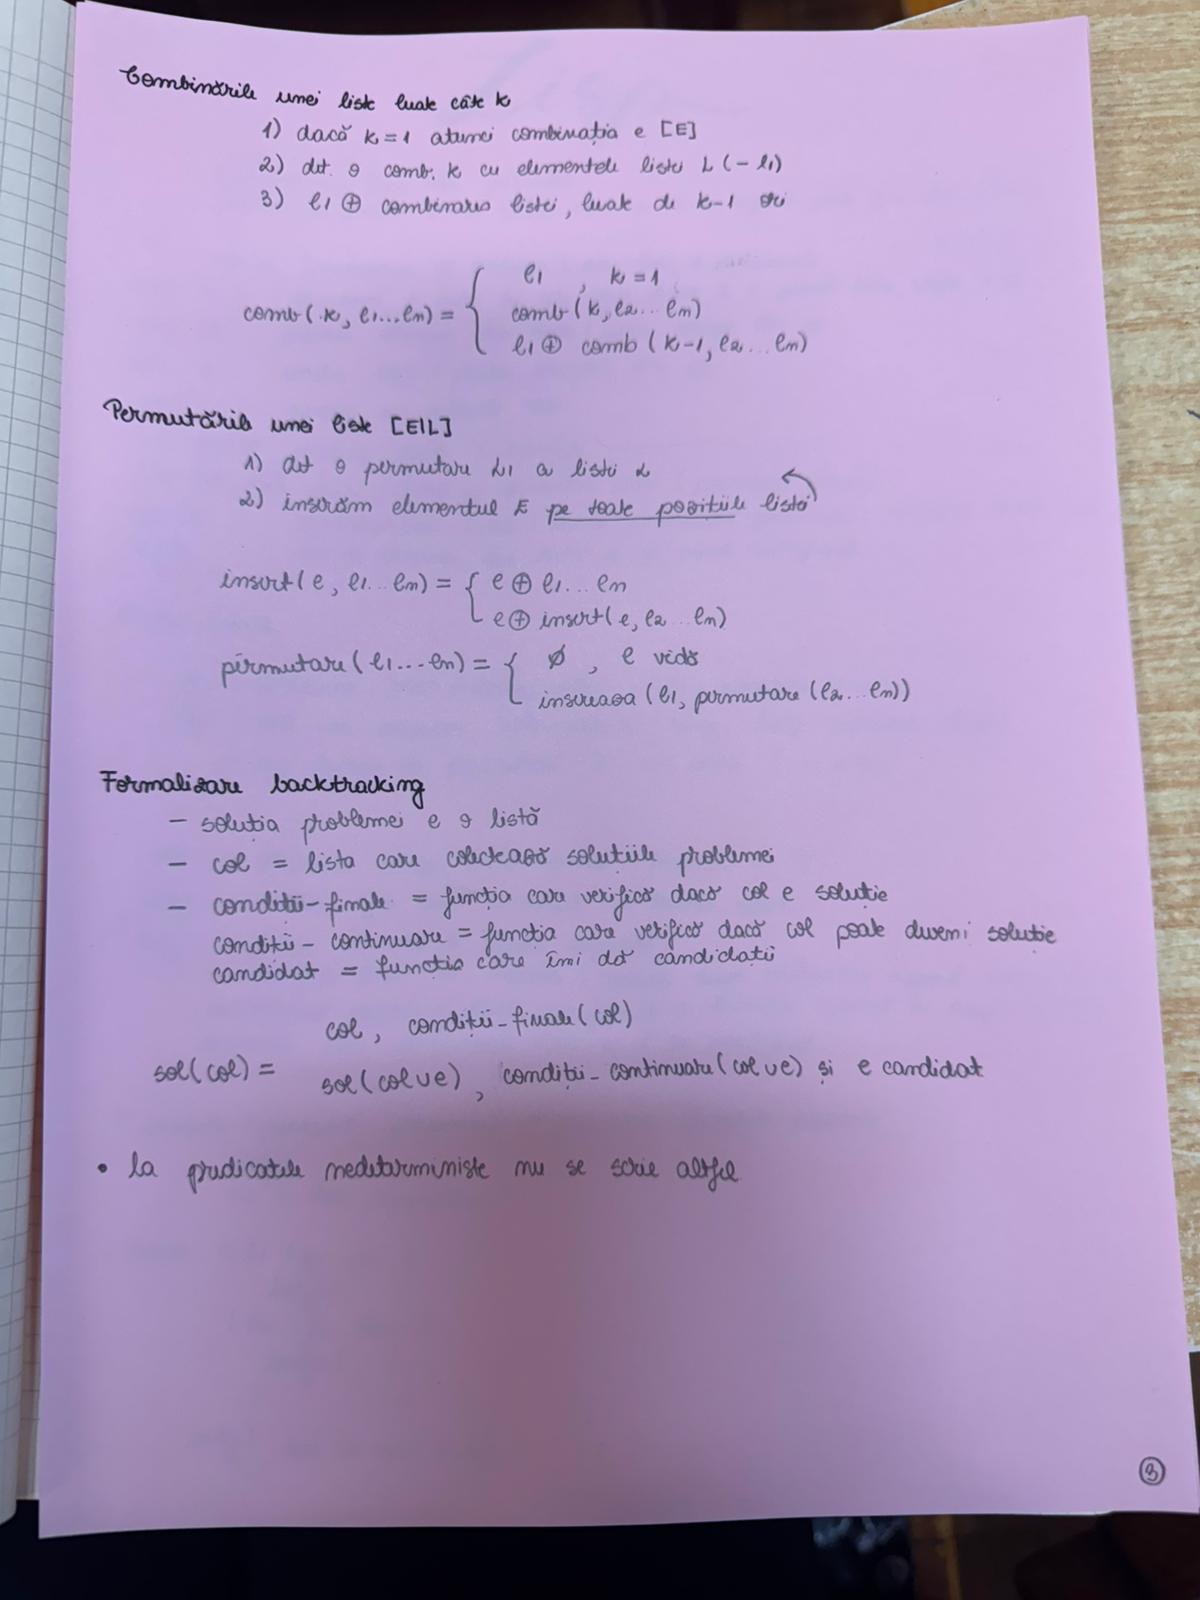 Combinările unei liste luate câte k
1) dacă k=1 atunci combinația e [E]
2) det. o comb. k cu elementele listei L (-l1)
3) l1 ⊕ combinarea listei, luate de k-1 ori
comb(k, l1...ln) = { l1 , k=1
comb(k, l2...ln)
l1 ⊕ comb(k-1, l2...ln)
Permutările unei liste [E|L]
1) det o permutare L1 a listei L
2) inserăm elementul E pe toate pozițiile listei
insert(e, l1...ln) = { e ⊕ l1...ln
e ⊕ insert(e, l2...ln)
permutare(l1...ln) = { ∅ , e vidă
inserează (l1, permutare (l2...ln))
Formalizare backtracking
- soluția problemei e o listă
- col = lista care colectează soluțiile problemei
- condiții-finale = funcția care verifică dacă col e soluție
condiții-continuare = funcția care verifică dacă col poate deveni soluție
candidat = funcția care îmi dă candidații
col, condiții-finale(col)
sol(col) =
sol(col ∪ e), condiții-continuare(col ∪ e) și e candidat
• la predicatele nedeterministe nu se scrie altfel
3